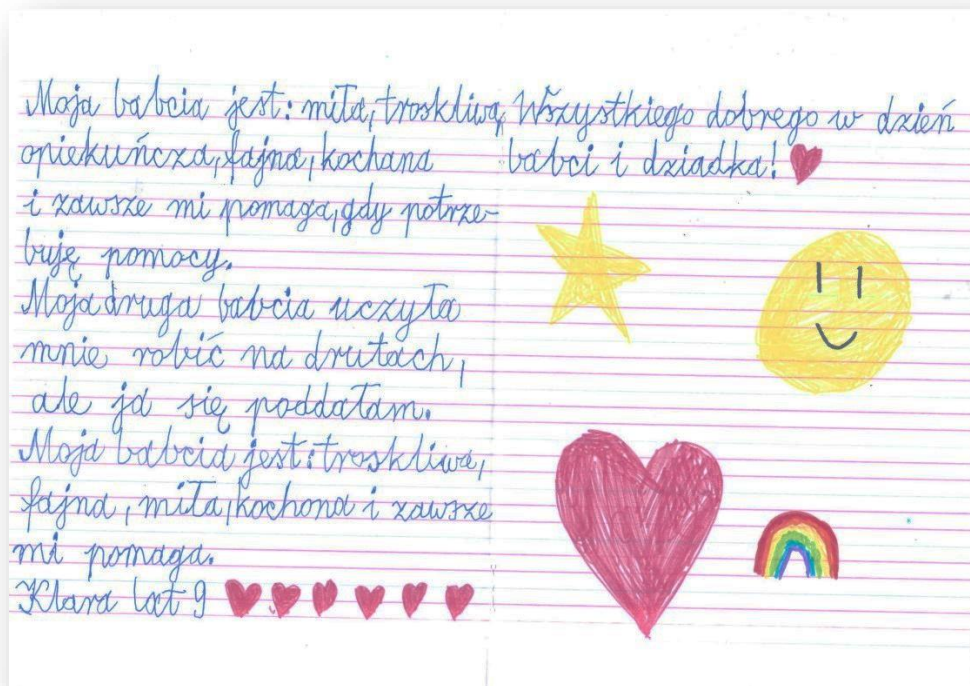 Moja babcia jest: miła, troskliwa,
opiekuńcza, fajna, kochana
i zawsze mi pomaga, gdy potrze-
buję pomocy.
Moja druga babcia uczyła
mnie robić na drutach,
ale ja się poddałam.
Moja babcia jest: troskliwa,
fajna, miła, kochona i zawsze
mi pomaga.
Klara lat 9
Wszystkiego dobrego w dzień
babci i dziadka!